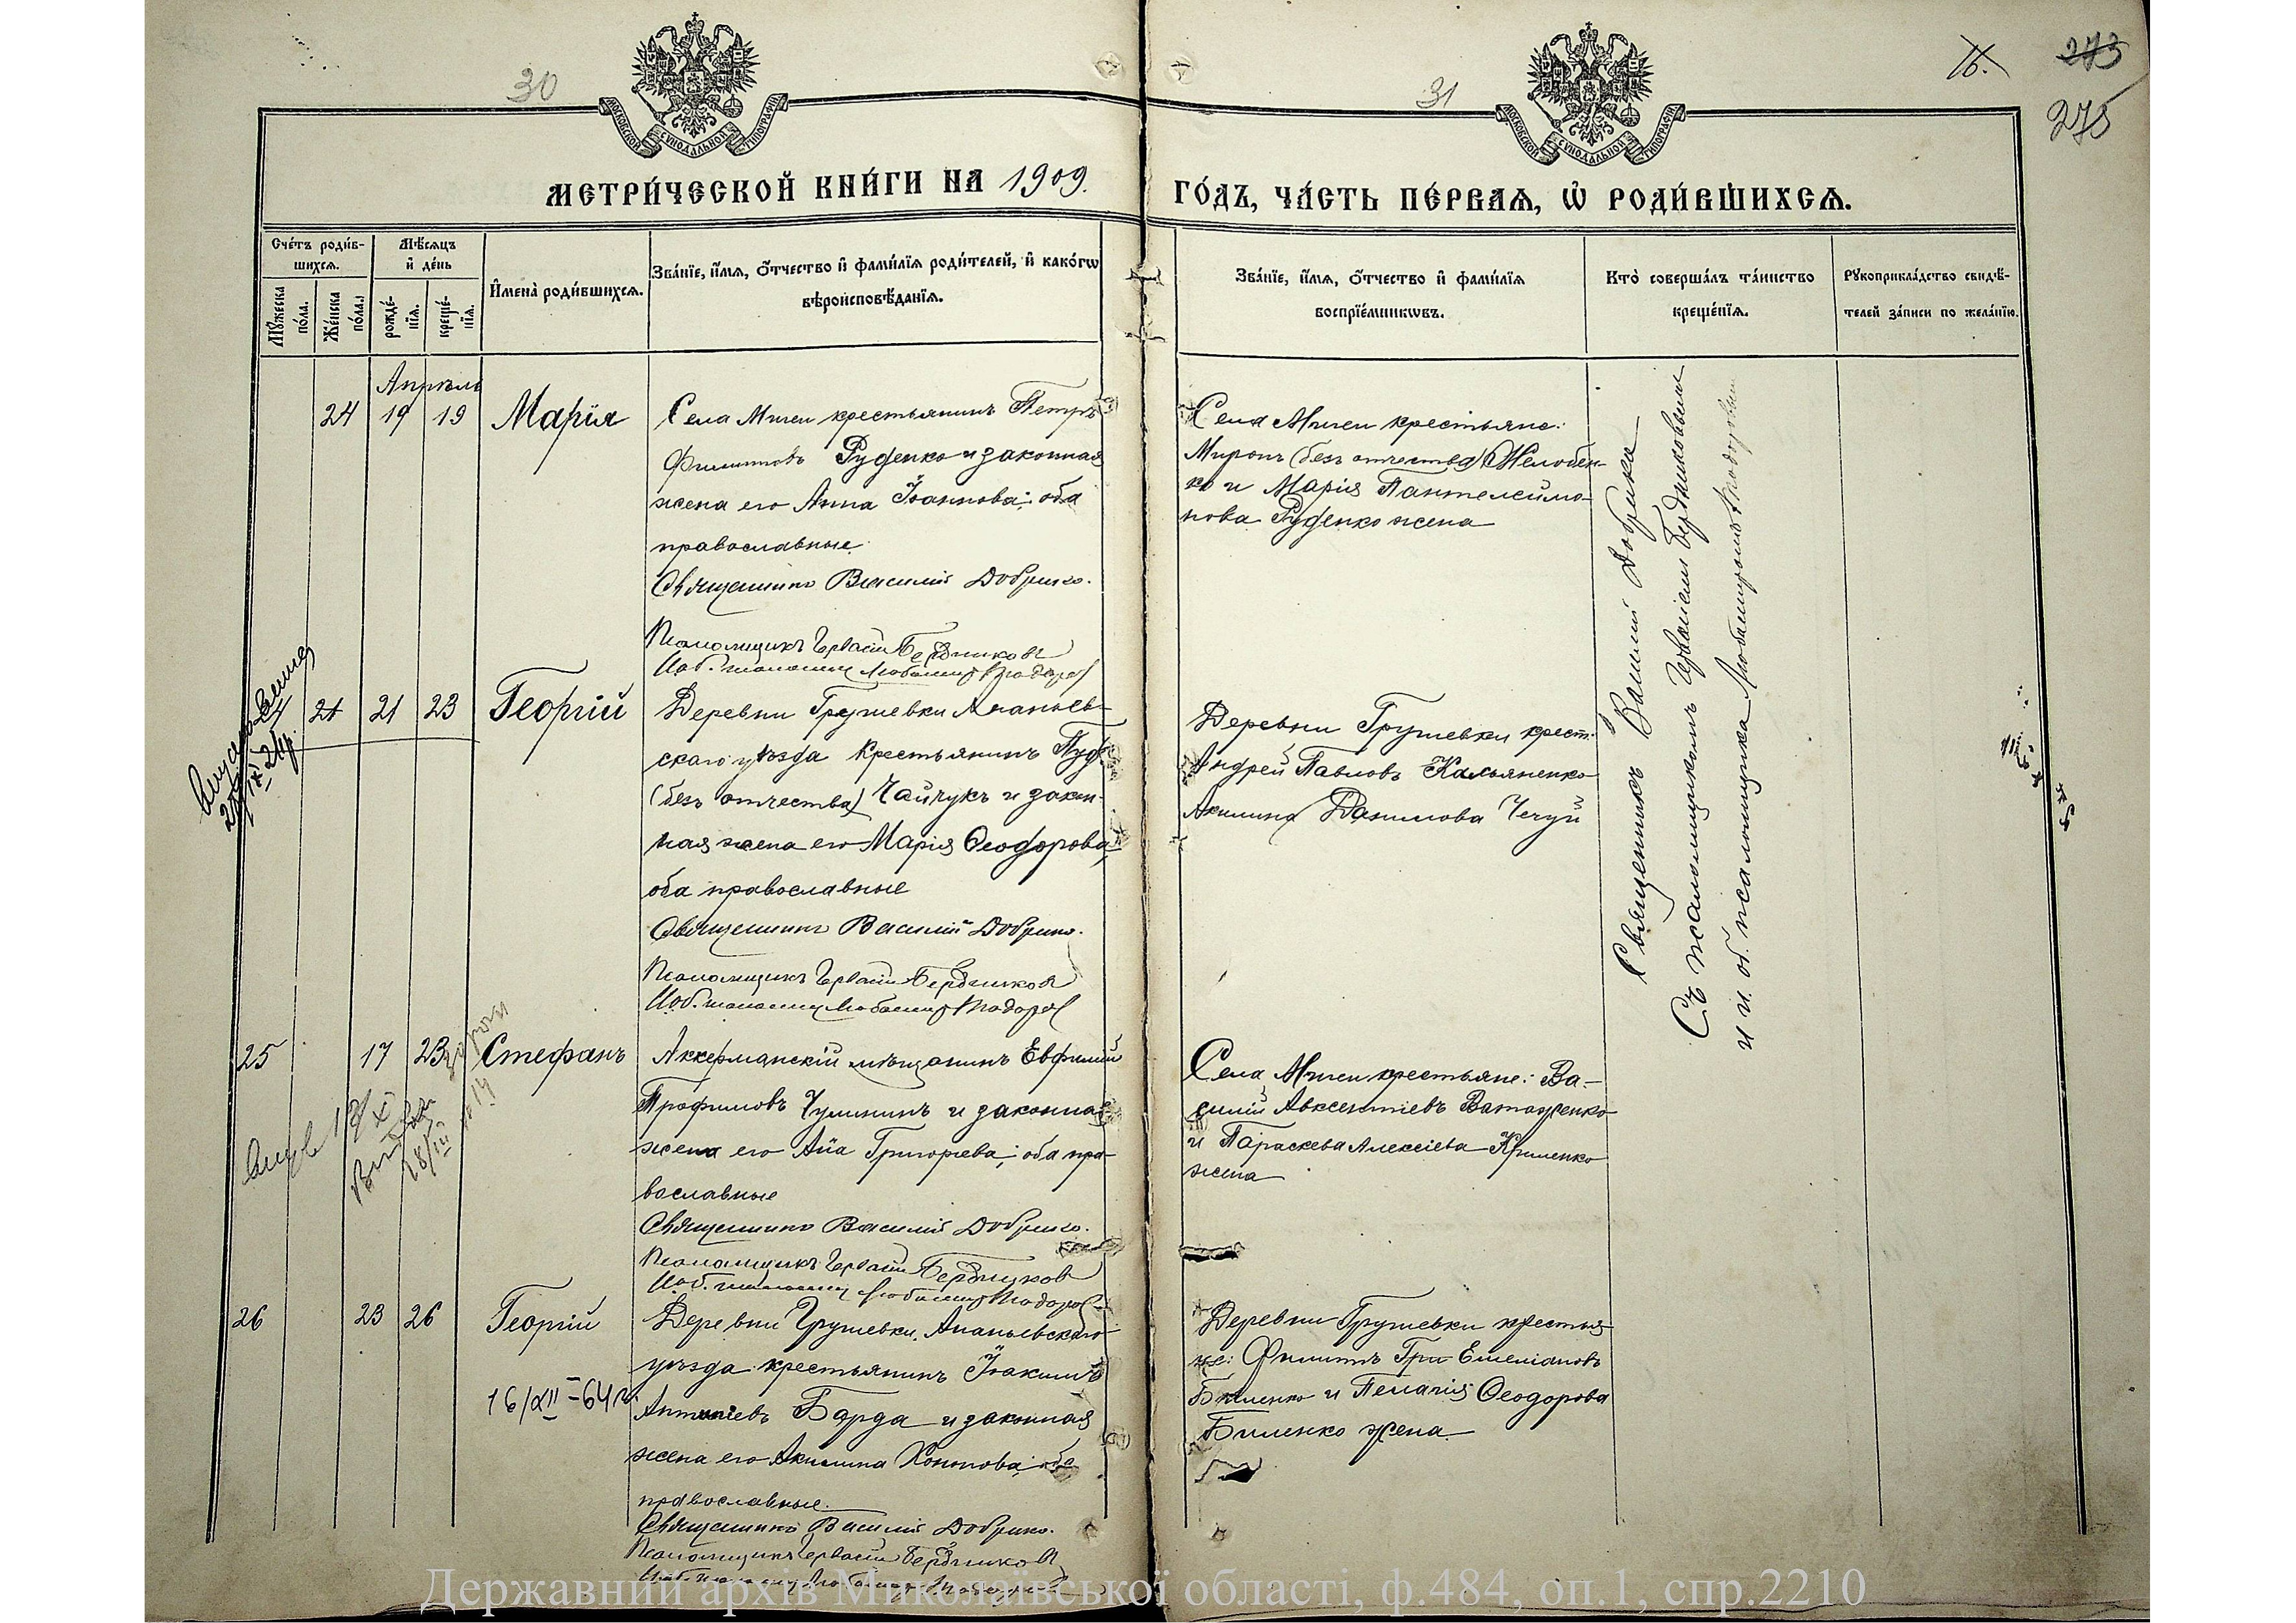 30
МОСКОВСКОЙ СѴНОДАЛЬНОЙ ТИПОГРАФІИ
31
МОСКОВСКОЙ СѴНОДАЛЬНОЙ ТИПОГРАФІИ
16.
273
275
МЕТРИ́ЧЕСКОЙ КНИ́ГИ НА 1909.
ГО́ДЪ, ЧА́СТЬ ПЕ́РВАѦ, Ѡ҆ РОДИ́ВШИХСѦ.
Сче́тъ роди́в-
шихсѧ.
Мѣ́сѧцъ
и҆ де́нь
Мꙋ́жеска
по́ла.
Же́нска
по́ла.
рожде́-
нїѧ.
креще́-
нїѧ.
И҆мена̀ роди́вшихсѧ.
Зва́нїе, и҆́мѧ, ѻ҆́тчество и҆ фами́лїѧ роди́телей, и҆ како́гѡ
вѣроисповѣ́данїѧ.
Зва́нїе, и҆́мѧ, ѻ҆́тчество и҆ фами́лїѧ
воспрїе́мникѡвъ.
Кто̀ соверша́лъ та́инство
креще́нїѧ.
Рꙋкоприкла́дство свидѣ́-
телей за́писи по жела́нїю.
Апрѣль
24 19 19 Марія
Села Мигеи крестьянинъ Петръ
Филипповъ Руденко и законная
жена его Анна Іоаннова; оба
православные.
Священникъ Василій Добрика.
Псаломщикъ Гервасій Бердниковъ
И об. псаломщ. Любомиръ
Села Мигеи крестьяне:
Миронъ (безъ отчества) Желобен-
ко и Марія Пантелеимо-
нова Руденко жена
Священникъ Василій Добрика
Съ псаломщикомъ Гервасіемъ Бердниковымъ
и и. об. псаломщика Любомиромъ
24 21 23 Георгій
Деревни Грушевки Ананьев-
скаго уѣзда крестьянинъ
(безъ отчества) Чайчукъ и закон-
ная жена его Марія Ѳеодорова,
оба православные
Священникъ Василій Добрика.
Псаломщикъ Гервасій Бердниковъ
И об. псаломщ. Любомиръ
Деревни Грушевки крест.
Андрей Павловъ Касьяненко
Акилина Данилова Чечуй
25 17 23 Стефанъ
Аккерманскій мѣщанинъ Евфимій
Трофимовъ Чулининъ и законная
жена его Анна Григорьева; оба пра-
вославные
Священникъ Василій Добрика.
Псаломщикъ Гервасій Бердниковъ
И об. псаломщ. Любомиръ
Села Мигеи крестьяне: Ва-
силій Авксентіевъ
и Параскева Алексіева Клименко
жена
26 23 26 Георгій
16/XII-64 г.
Деревни Грушевки, Ананьевскаго
уѣзда крестьянинъ Іоакимъ
Антиповъ Барда и законная
жена его Акилина Кононова; оба
православные.
Священникъ Василій Добрика.
Псаломщикъ Гервасій Бердниковъ
Деревни Грушевки крестья-
не: Филиппъ Гри Емеліановъ
Биленко и Пелагія Ѳеодорова
Биленко жена
Державний архів Миколаївської області, ф.484, оп.1, спр.2210